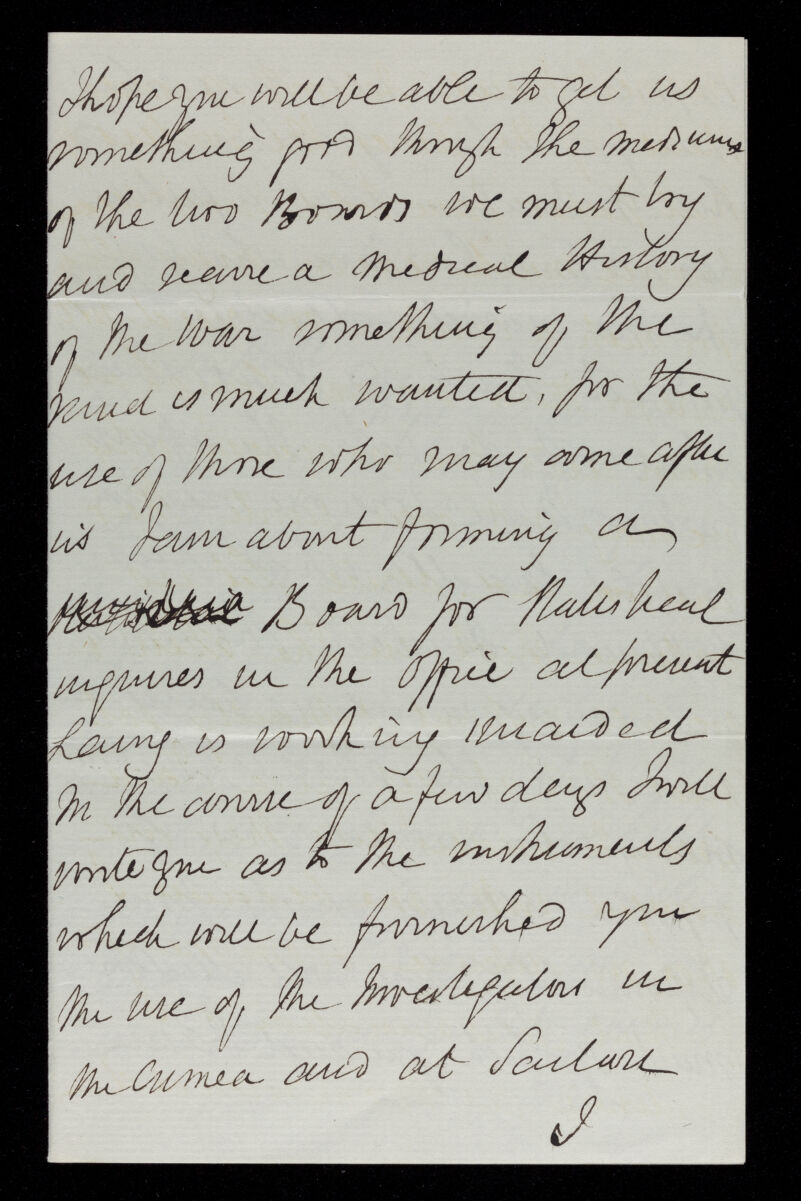 I hope you will be able to get us
something good through the mediums
of the two Boards we must try
and secure a Medical History
of the War something of the
kind is much wanted, for the
use of those who may come after
us I am about forming a
Board for Statistical
inquires in the Office at present
Laing is working unaided
In the course of a few days I will
write you as to the instruments
which will be furnished you
the use of the Investigators in
the Crimea and at Scutari
I